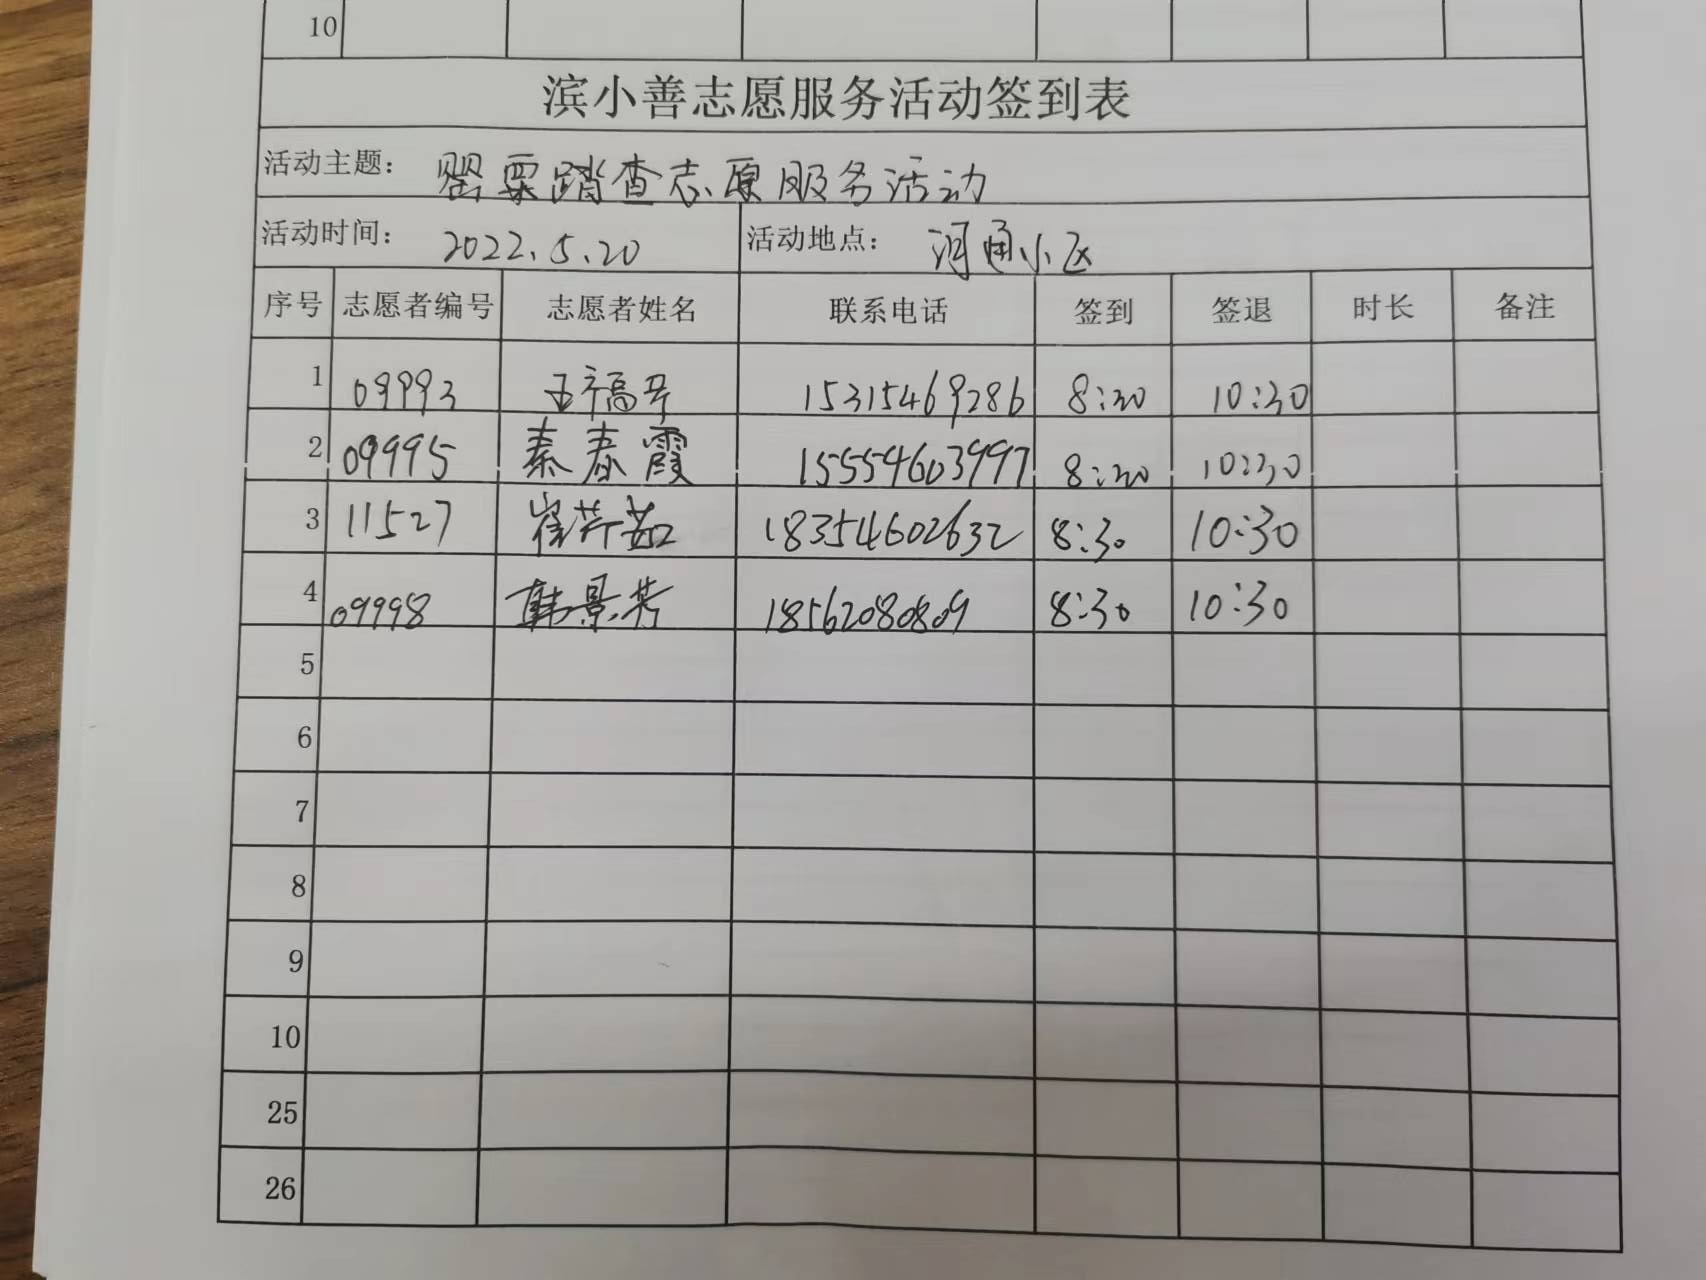 10
滨小善志愿服务活动签到表
活动主题： 罂粟踏查志愿服务活动
活动时间： 2022.5.20 活动地点： 河通小区
序号 志愿者编号 志愿者姓名 联系电话 签到 签退 时长 备注
1 09993 王福 15315469286 8:30 10:30
2 09995 秦春霞 15554603997 8:30 10:30
3 11527 崔芹茹 18354602632 8:30 10:30
4 09998 韩景芳 18562080809 8:30 10:30
5
6
7
8
9
10
25
26